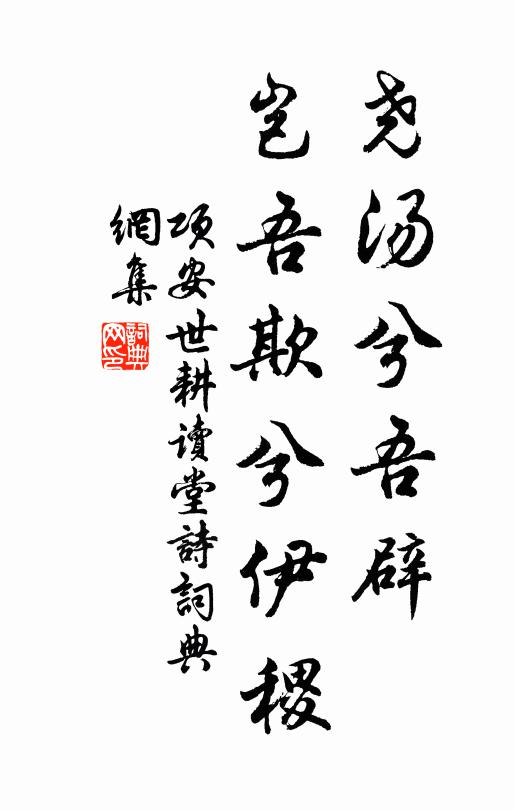 尧汤兮吾辟
岂吾欺兮伊稷
项安世耕讀堂詩詞典
網集
詞典網印